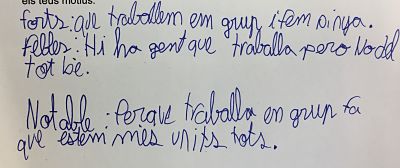 els teus motius.
forts: que traballem em grup i fem pinya.
Febles: Hi ha gent que traballa pero No del
tot bé.
Notable: Perque traballa en grup fa
que estem mes units tots.